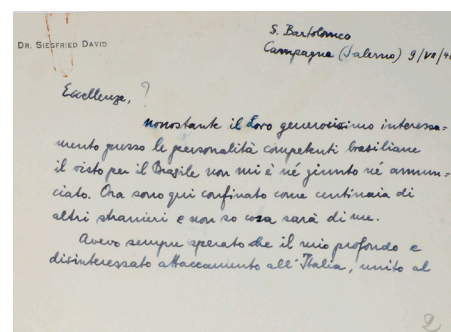 DR. SIEGFRIED DAVID
S. Bartolomeo
Campagna (Salerno) 9/VII/40
Eccellenze, ?
nonostante il Loro generosissimo interessa=
mento presso le personalità competenti brasiliane
il visto per il Brasile non mi è né giunto né annun=
ciato. Ora sono qui confinato come centinaia di
altri stranieri e non so cosa sarà di me.
Avevo sempre sperato che il mio profondo e
disinteressato attaccamento all'Italia, unito al
2